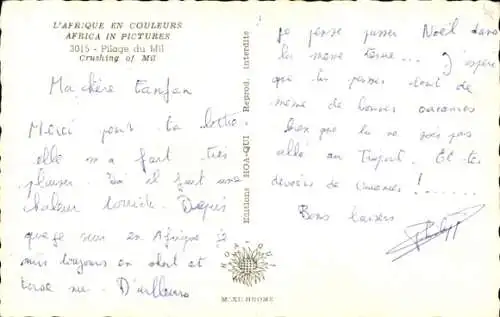 L'AFRIQUE EN COULEURS
AFRICA IN PICTURES
3015 - Pilage du Mil
Crushing of Mil
Ma chère Fanfan
Merci pour ta lettre
elle m'a fait très
plaisir. Ici il fait une
chaleur torride. Depuis
que je suis en Afrique je
suis toujours en short et
torse nu. D'ailleurs
Editions HOA-QUI Reprod. interdite
HOA-QUI
je pense passer Noël dans
la même tenue... J'espère
que tu passes tout de
même de bonnes vacances
bien que tu ne sois pas
allée au. Et tes
devoirs de vacances! .......
Bons baisers